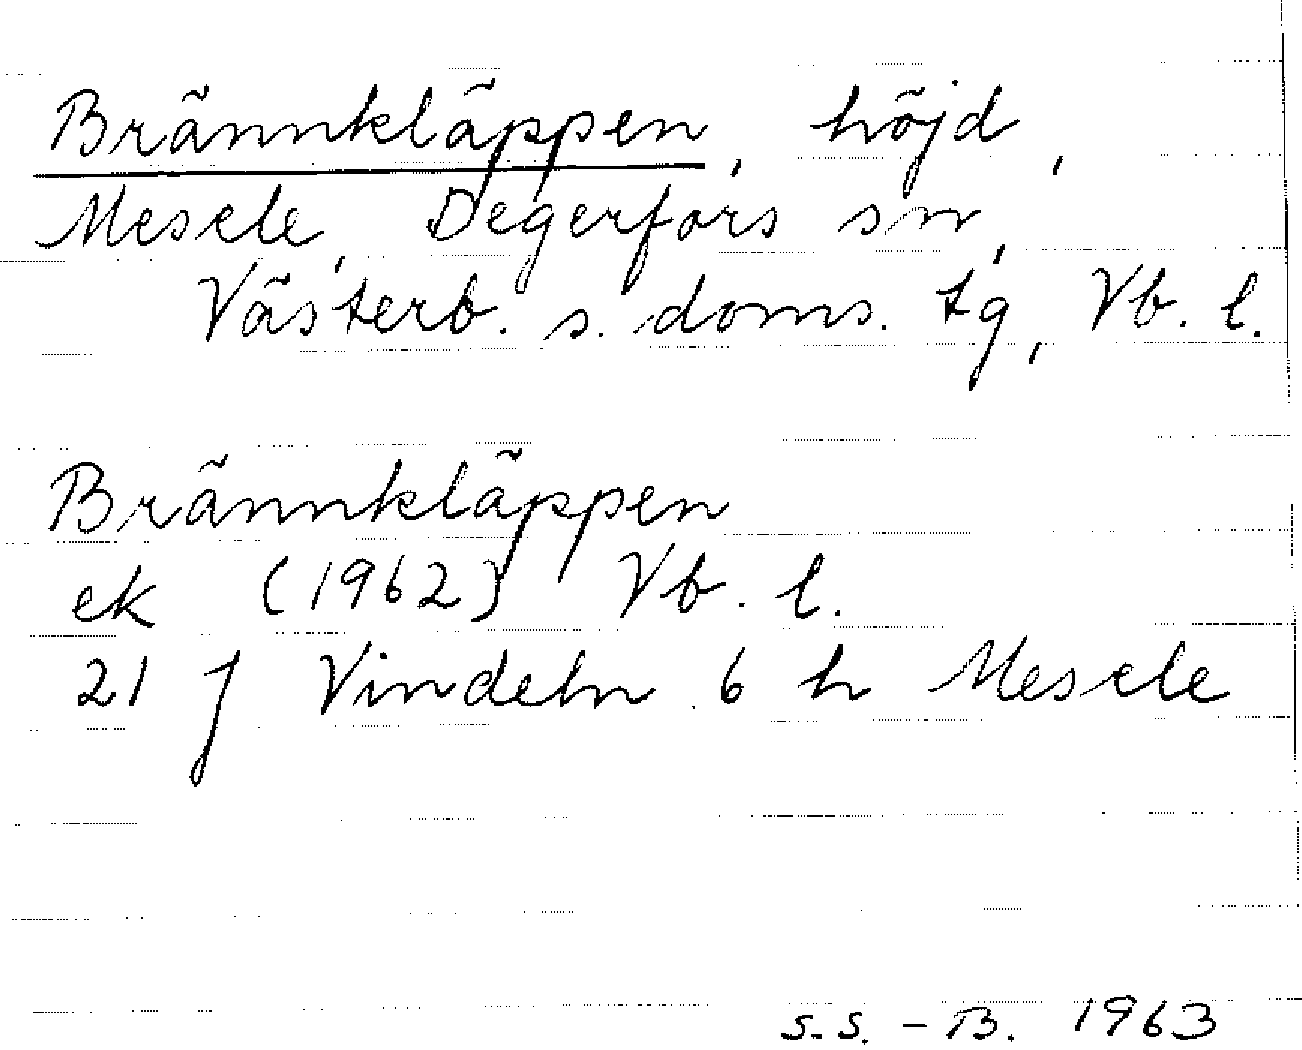 Brännkläppen, höjd,
Mesele, Degerfors sn,
Västerb. s. doms. tg, Vb. l.
Brännkläppen
ek (1962) Vb. l.
21 J Vindeln 6 h Mesele
S.S. - B. 1963